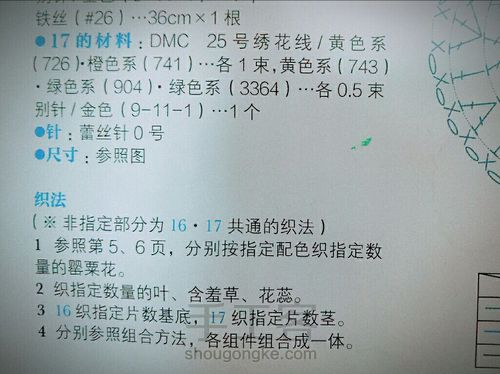 铁丝（#26）…36cm×1 根
●17 的材料：DMC 25 号绣花线/黄色系
（726）·橙色系（741）…各 1 束，黄色系（743）
·绿色系（904）·绿色系（3364）…各 0.5 束
别针/金色（9-11-1）…1 个
●针：蕾丝针 0 号
●尺寸：参照图
织法
（※ 非指定部分为 16·17 共通的织法）
1 参照第 5、6 页，分别按指定配色织指定数
量的罂粟花。
2 织指定数量的叶、含羞草、花蕊。
3 16 织指定片数基底，17 织指定片数茎。
4 分别参照组合方法，各组件组合成一体。
shougongke.com